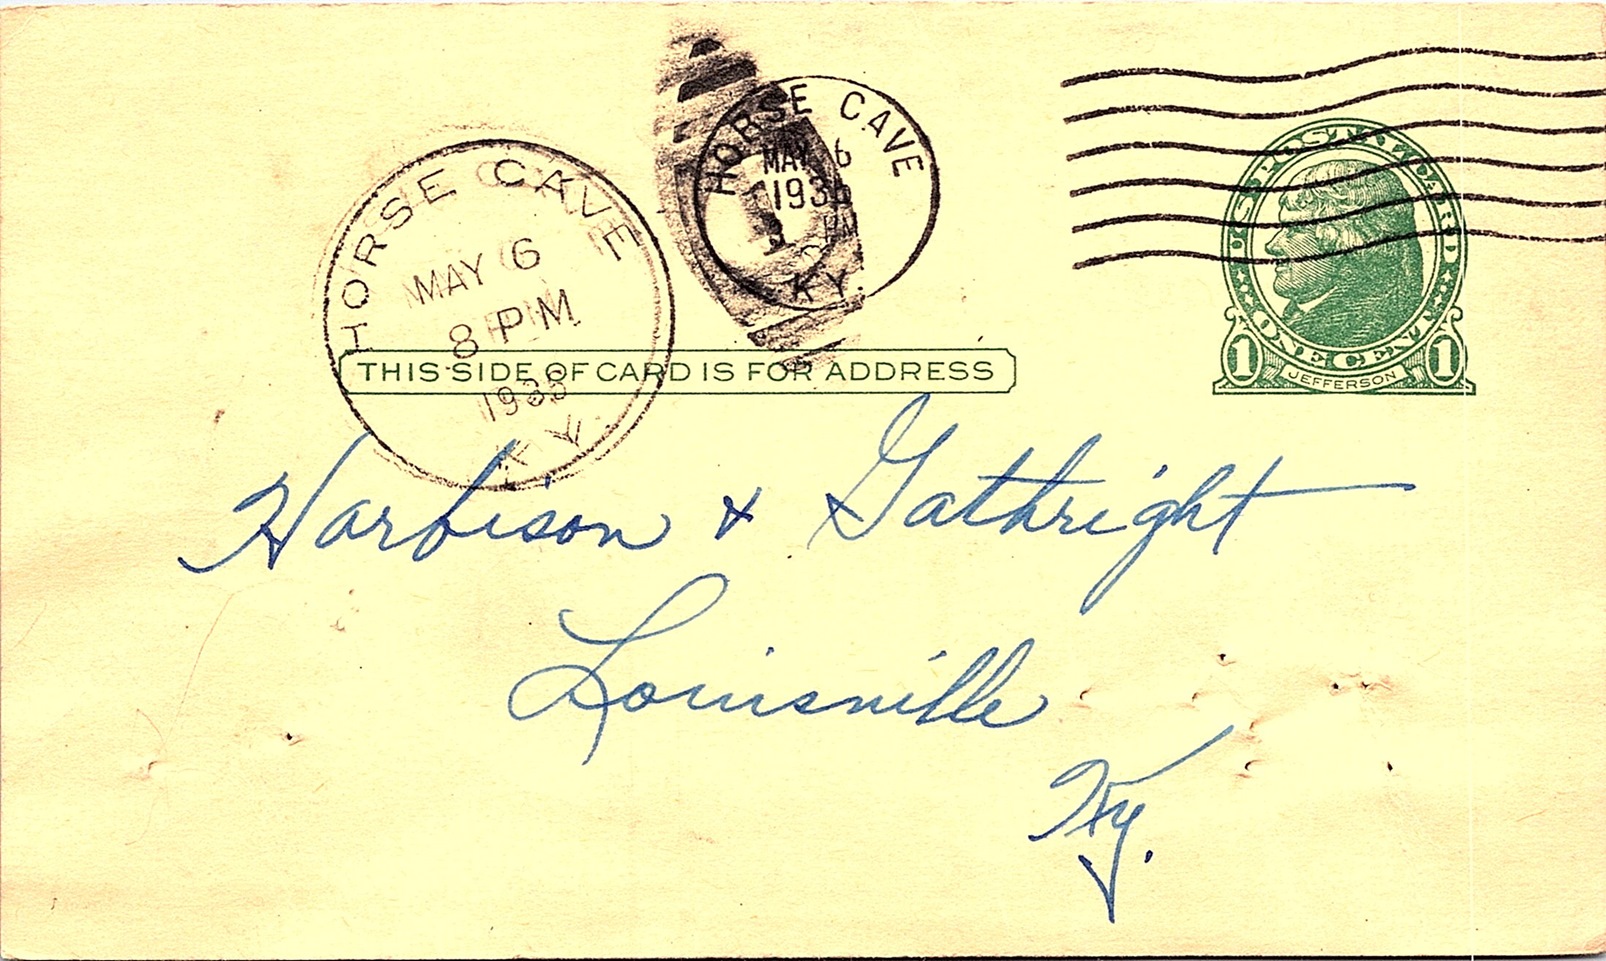 HORSE CAVE
MAY 6
8 PM
KY.
HORSE CAVE
MAY 6
1936
PM
KY.
U.S. POSTAL CARD
ONE CENT
1 1
JEFFERSON
THIS SIDE OF CARD IS FOR ADDRESS
Harbison & Gathright
Louisville
Ky.